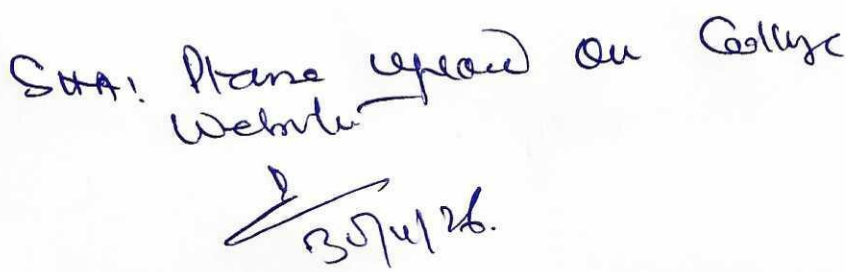 SHA! Please upload on College
Website
30/4/26.